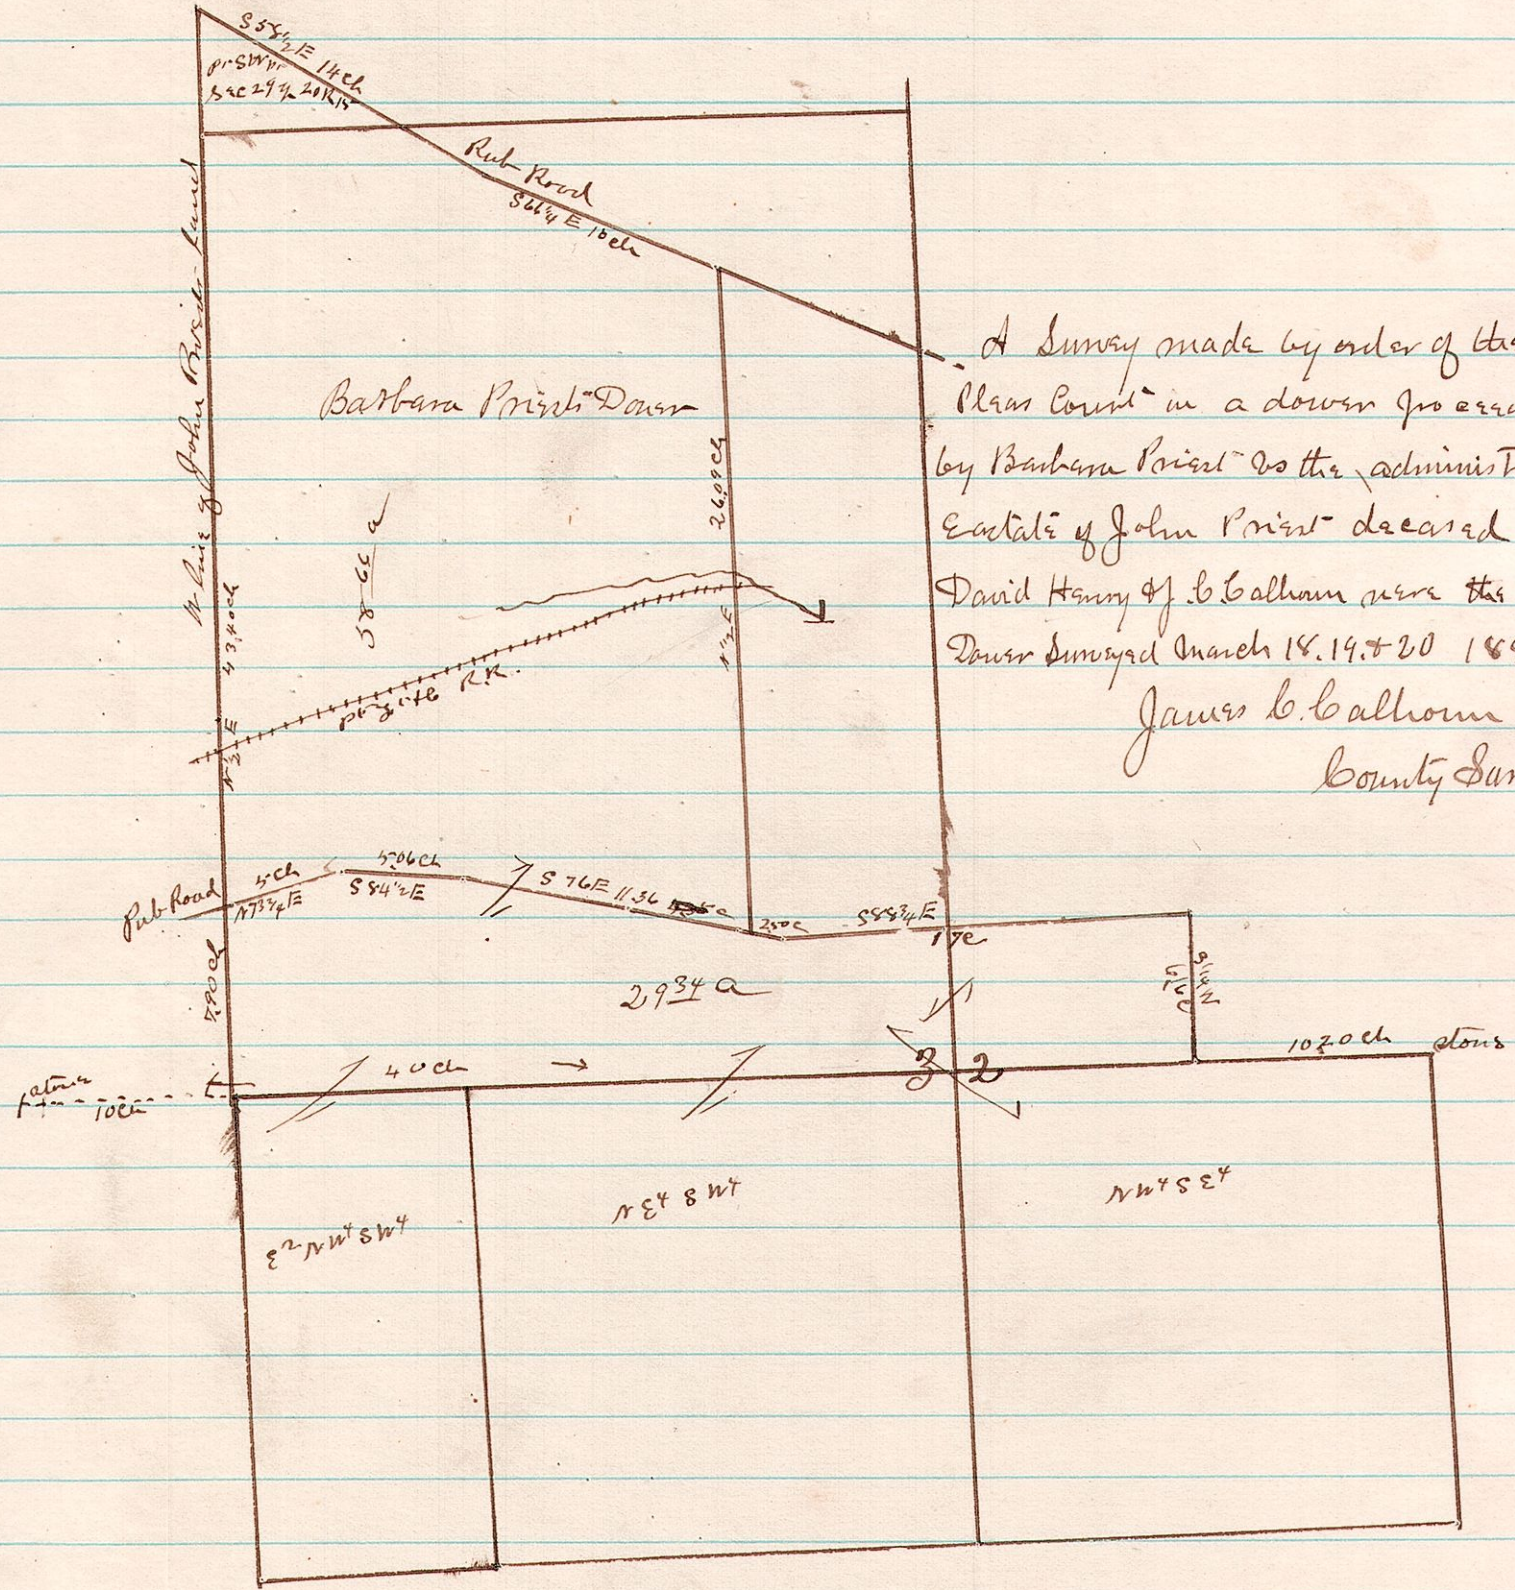 S 58½ E 14 Ch
Pr SW pr
Sec 29 T 20 R 15
Pub Road
S 66¼ E 10 ch
W line of John Priests Lands
Barbara Priests Dower
58 65 a
26.09 Ch
N ½ E
43.40 ch
N ½ E
R.R.
Pub Road
5 Ch
N 73¾ E
5.06 Ch
S 84½ E
S 76 E 11.36
2.50 c
S 88¾ E
17 c
7.90 Ch
29 34 a
N ¼ E
40 Ch
3 2
10 20 ch stone
stone
10 ch
E2 NW4 SW4
NE4 SW4
NW4 SE4
A Survey made by order of the
Pleas Court in a dower proceed
by Barbara Priest vs the administ
Eastate of John Priest decased
David Henry & J. C. Calhoun were the
Dower Surveyed March 18. 19. & 20 189
James C. Calhoun
County Sur